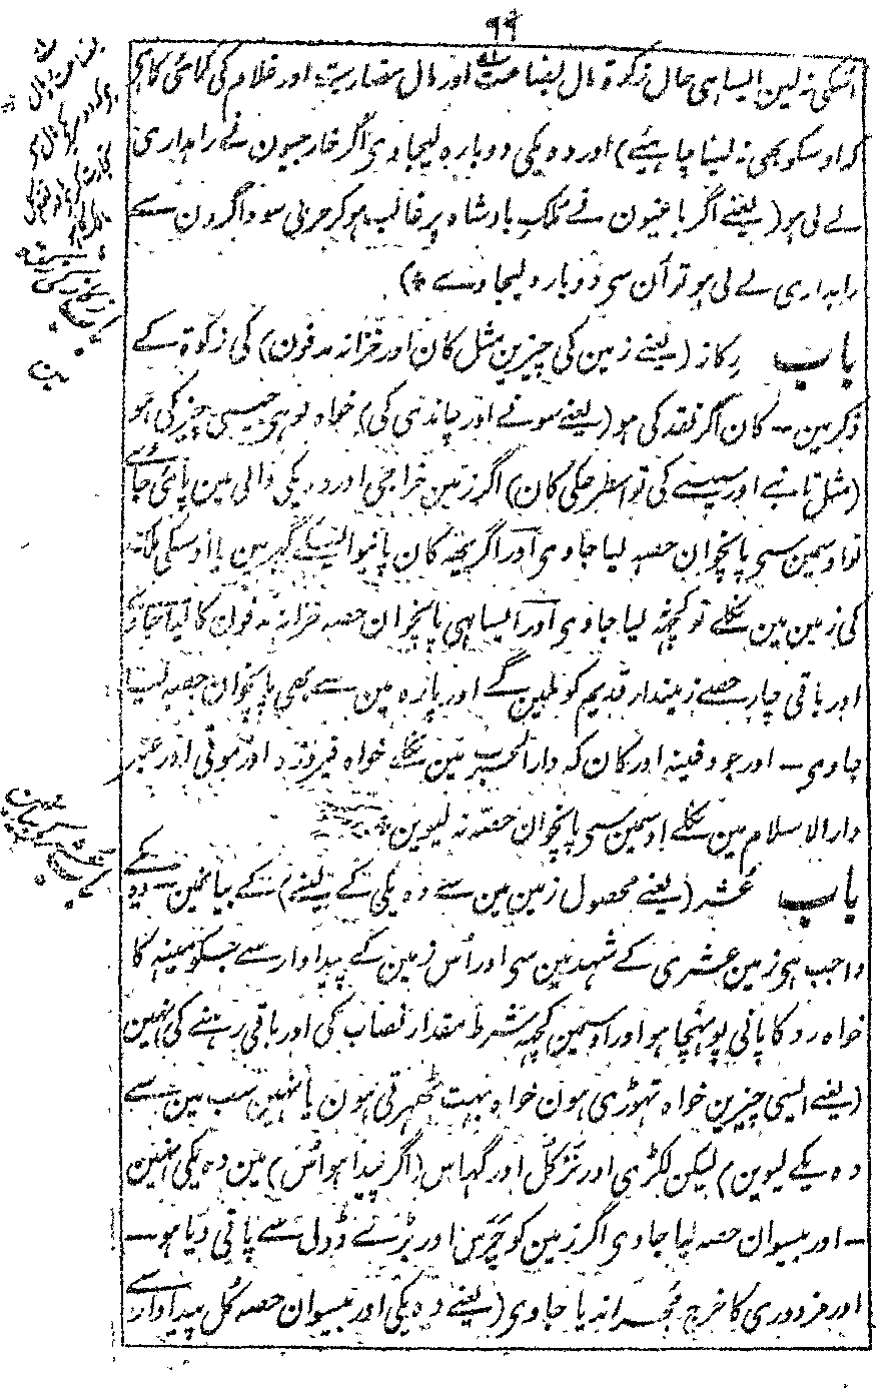 ۹۹
اوسکی نہ لین ایساہی حال زکوۃ مال بضاعت اور مال مضاربت اور غلام کی کمائی کا ہی
کہ اوسکو بھی نہ لینا چاہیئے) اور دہ یکی دوبارہ لیجاوی اگر خارجیون نے راہداری
لے لی ہو (یعنے اگر باغیون نے ملک بادشاہ پر غالب ہوکر حربی سوداگرون سے
راہداری لے لی ہو تو اُن سی دوبارہ لیجاوے *)
باب رکاز (یعنے زمین کی چیزین مثل کان اور خزانہ مدفون) کی زکوۃ کے
ذکرمین — کان اگر نقد کی ہو (یعنے سونے اور چاندی کی) خواہ لوہی جیسی چیز کی ہو
(مثل تانبے اور سیسے کی تو اسطرحکی کان) اگر زمین خراجی اور دہ یکی والی مین پائی جائے
تو اوسمین سی پانچوان حصہ لیا جاوی اور اگر یہہ کان پانیوالیکے گہر مین یا اوسکی ملک
کی زمین مین نکلے تو کچہہ نہ لیا جاوی اور ایسا ہی پانچوان حصہ خزانہ مدفون کا لیا جاوے
اور باقی چار حصے زمیندار قدیم کو ملینگے اور پارہ مین سے بھی پانچوان حصہ لیا
جاوی — اور جو دفینہ اور کان کہ دارالحرب مین نکلے خواہ فیروزہ اور موتی اور عنبر
دارالاسلام مین نکلے اوسمین سی پانچوان حصہ نہ لیوین
باب عُشر (یعنے محصول زمین مین سے دہ یکی کے لینے) کے بیانمین دہ یکے
واجب ہی زمین عشری کے شہد مین سی اور اُس زمین کے پیداوار سے جسکو مینہ کا
خواہ رود کا پانی پوہنچا ہو اور اوسمین کچہہ شرط مقدار نصاب کی اور باقی رہنے کی نہین
(یعنے ایسی چیزین خواہ تہوڑی ہون خواہ بہت ٹھہرتی ہون یا نہین سب مین سے
دہ یکے لیوین) لیکن لکڑی اور نرکل اور گہاس (اگر پیدا ہو اُس) مین دہ یکی نہین
— اور بیسوان حصہ لیا جاوی اگر زمین کو چرس اور بڑے ڈول سے پانی دیا ہو —
اور مزدوری کا خرچ مُجرا ندیا جاوی (یعنے دہ یکی اور بیسوان حصہ کُل پیداوار سے